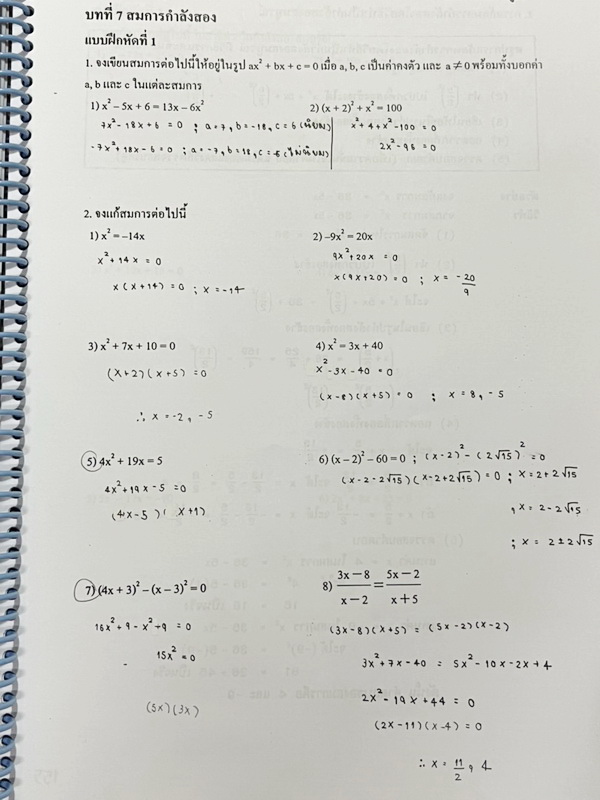 บทที่ 7 สมการกำลังสอง
แบบฝึกหัดที่ 1
1. จงเขียนสมการต่อไปนี้ให้อยู่ในรูป ax² + bx + c = 0 เมื่อ a, b, c เป็นค่าคงตัว และ a ≠ 0 พร้อมทั้งบอกค่า
a, b และ c ในแต่ละสมการ
1) x² – 5x + 6 = 13x – 6x²
7x² - 18x + 6 = 0 ; a = 7, b = -18, c = 6 (นิยม)
-7x² + 18x - 6 = 0 ; a = -7, b = 18, c = -6 (ไม่นิยม)
2) (x + 2)² + x² = 100
x² + 4 + x² - 100 = 0
2x² - 96 = 0
2. จงแก้สมการต่อไปนี้
1) x² = –14x
x² + 14x = 0
x (x + 14) = 0 ; x = -14
2) –9x² = 20x
9x² + 20x = 0
x (9x + 20) = 0 ; x = -20/9
3) x² + 7x + 10 = 0
(x+2) (x+5) = 0
∴ x = -2, -5
4) x² = 3x + 40
x² - 3x - 40 = 0
(x-8) (x+5) = 0 ; x = 8, -5
5) 4x² + 19x = 5
4x² + 19x - 5 = 0
(4x - 5) ( x + 1)
6) (x – 2)² – 60 = 0 ; (x-2)² - (2√15)² = 0
(x - 2 - 2√15) (x - 2 + 2√15) = 0 ; x = 2 + 2√15
, x = 2 - 2√15
; x = 2 ± 2√15
7) (4x + 3)² – (x – 3)² = 0
16x² + 9 - x² + 9 = 0
15x² = 0
(5x) (3x)
8) (3x – 8)/(x – 2) = (5x – 2)/(x + 5)
(3x-8) (x+5) = (5x-2) (x-2)
3x² + 7x - 40 = 5x² - 10x - 2x + 4
2x² - 19x + 44 = 0
(2x - 11) (x - 4) = 0
∴ x = 11/2, 4